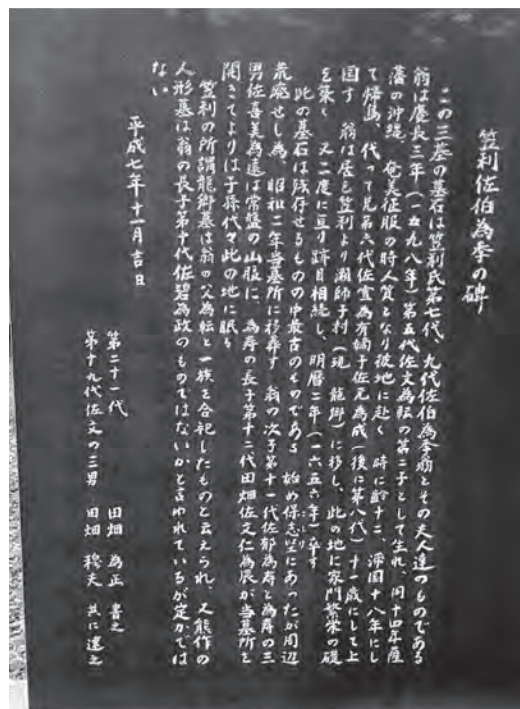 笠利佐伯為季の碑
この三基の墓石は笠利氏第七代、九代佐伯為季翁とその夫人達のものである
翁は慶長三年(一五九八年)第五代佐文為転の第二子として生れ、同十四年薩
藩の沖縄、奄美征服の時人質となり彼地に赴く 時に齢十二、滞国十八年にし
て帰島、代って兄第六代佐宣為有嫡子佐元為成(後に第八代)十一歳にして上
国す 翁は居を笠利より瀬師子村(現 龍郷)に移し、此の地に家門繁栄の礎
を築く 又二度に亘り跡目相続し、明暦二年(一六五六年)卒す
此の墓石は残存せるものの中最古のものである 始め保志里にあったが周辺
荒廃せし為、昭和二年当墓所に移葬す 翁の次子第十一代佐郁為寿と為寿の三
男佐喜美為遠は常盤の山服に、為寿の長子第十二代田畑佐文仁為辰が当墓所を
開きてよりは子孫代々此の地に眠る
笠利の所謂龍郷墓は翁の父為転と一族を合祀したものと云えられ、又能作の
人形墓は翁の長子第十代佐碧為政のものではないかと言われているが定かでは
ない
平成七年十一月吉日
第二十一代 田畑 為正 書之
第十九代佐文の三男 田畑 穆夫 共に建之